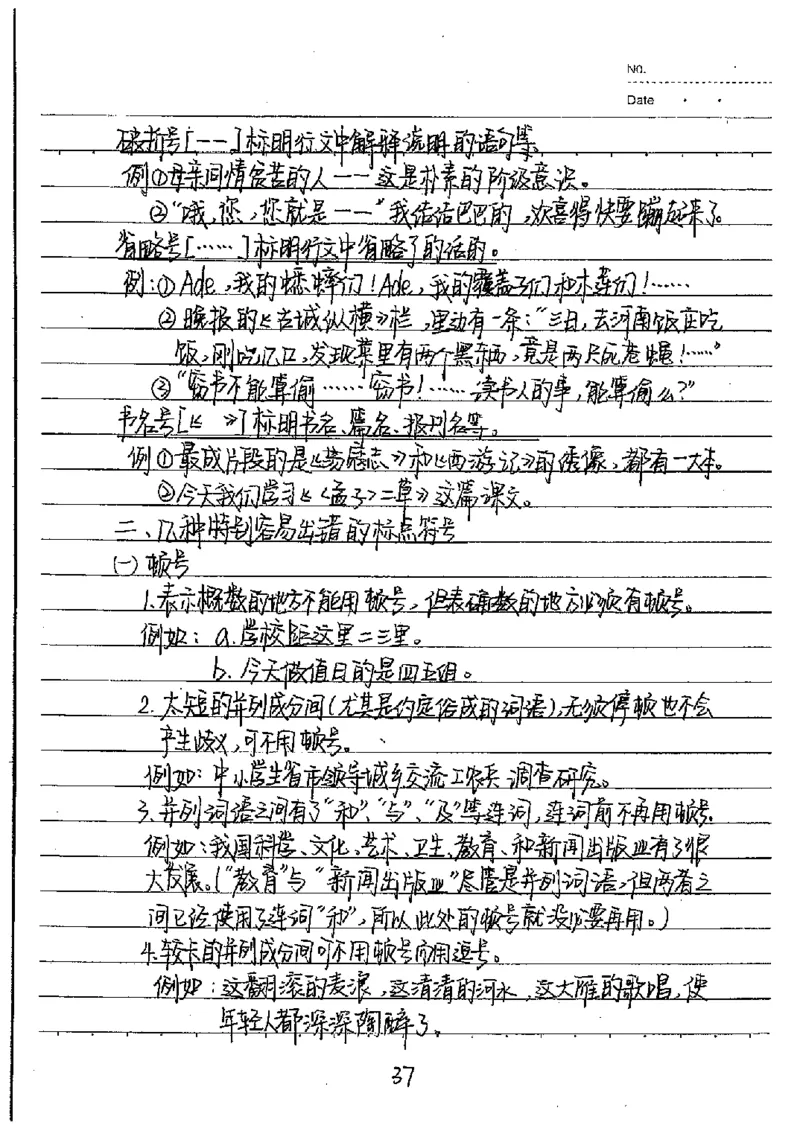 No.
Date
破折号[——]标明行文中解释说明的语句等。
例①母亲同情贫苦的人——这是朴素的阶级意识。
②"哦,您,您就是——"我结结巴巴的,欢喜得快要蹦起来了。
省略号[……]标明行文中省略了的话的。
例:①Ade,我的蟋蟀们!Ade,我的覆盖子们和木莲们!……
②晚报的《古城纵横》栏,里边有一条:"三日,去河南饭店吃
饭,刚吃几口,发现菜里有两个黑东西,竟是两只死苍蝇!……"
③"窃书不能算偷……窃书!……读书人的事,能算偷么?"
书名号[《 》]标明书名、篇名、报刊名等。
例①最成片段的是《劳 志》和《西游记》的绣像,都有一大本。
②今天我们学习《〈孟子〉二章》这篇课文。
二、几种特别容易出错的标点符号
(一)顿号
1.表示概数的地方不能用顿号,但表确数的地方必须有顿号。
例如: a.学校距这里二三里。
b.今天做值日的是四五组。
2.太短的并列成分间(尤其是约定俗成的词语),无须停顿也不会
产生歧义,可不用顿号。
例如:中小学生省市领导城乡交流工农兵调查研究。
3.并列词语之间有了"和"、"与"、"及"等连词,连词前不再用顿号.
例如:我国科学、文化、艺术、卫生、教育、和新闻出版业有了很
大发展。("教育"与"新闻出版业"尽管是并列词语,但两者之
间已经使用了连词"和",所以此处的顿号就没必要再用。)
4.较长的并列成分间可不用顿号而用逗号。
例如:这翻滚的麦浪,这清清的河水,这大雁的歌唱,使
年轻人都深深陶醉了。
37